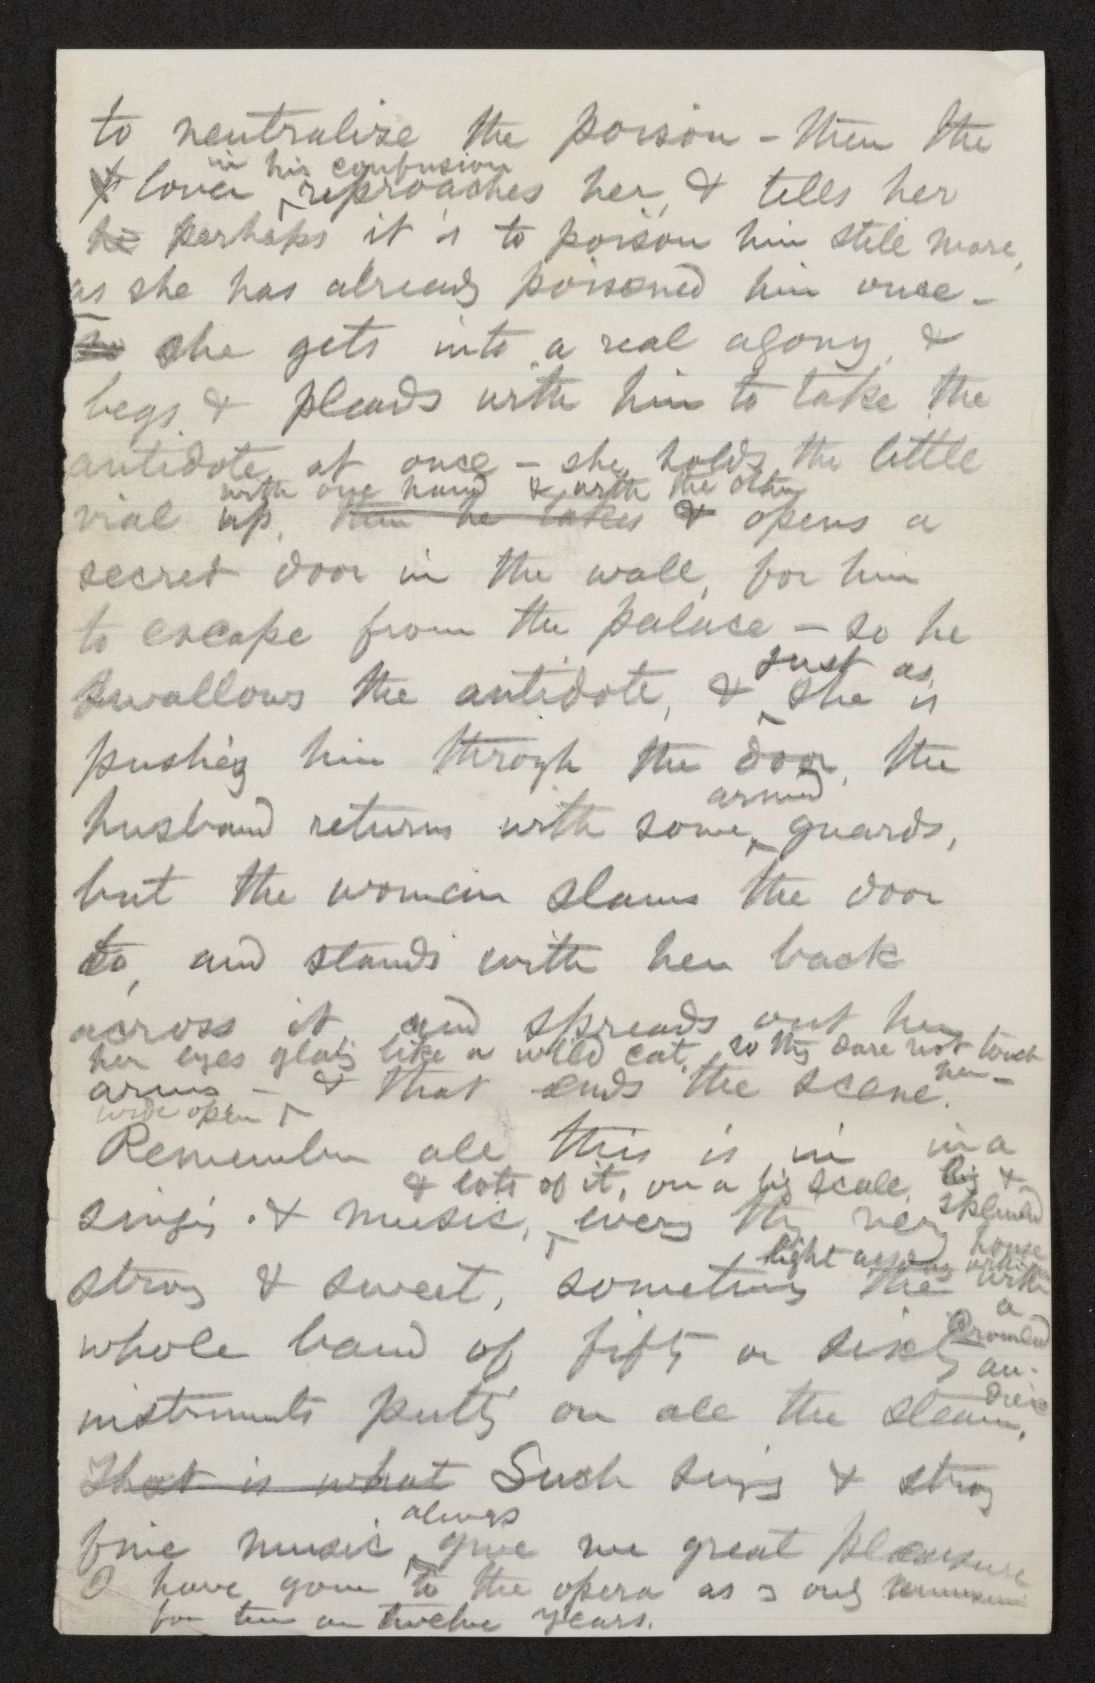 to neutralize the poison – then the
in his confusion
& lover reproaches her, & tells her
he perhaps it is to poison him still more,
as she has already poisoned him once –
so she gets into a real agony, &
begs & pleads with him to take the
antidote at once – she holds the little
with one hand & with the other
vial up, then he takes & opens a
secret door in the wall, for him
to escape from the palace – so he
just as
swallows the antidote, & she is
pushing him through the door, the
armed
husband returns with some guards,
but the woman slams the door
to, and stands with her back
across it, and spreads out her
her eyes glaring like a wild cat, so they dare not touch
her –
arms – & that ends the scene.
wide open
Remember all this is in in a
& lots of it, on a big scale, big &
splendid
singing & music, every thing very
house
light
with
a
strong & sweet, sometimes the
crowded
whole band of fifty or sixty
au-
dience
instruments putting on all the steam.
That is what Such singing & strong
always
fine music give me great pleasure
I have gone to the opera as a only
for ten or twelve years.